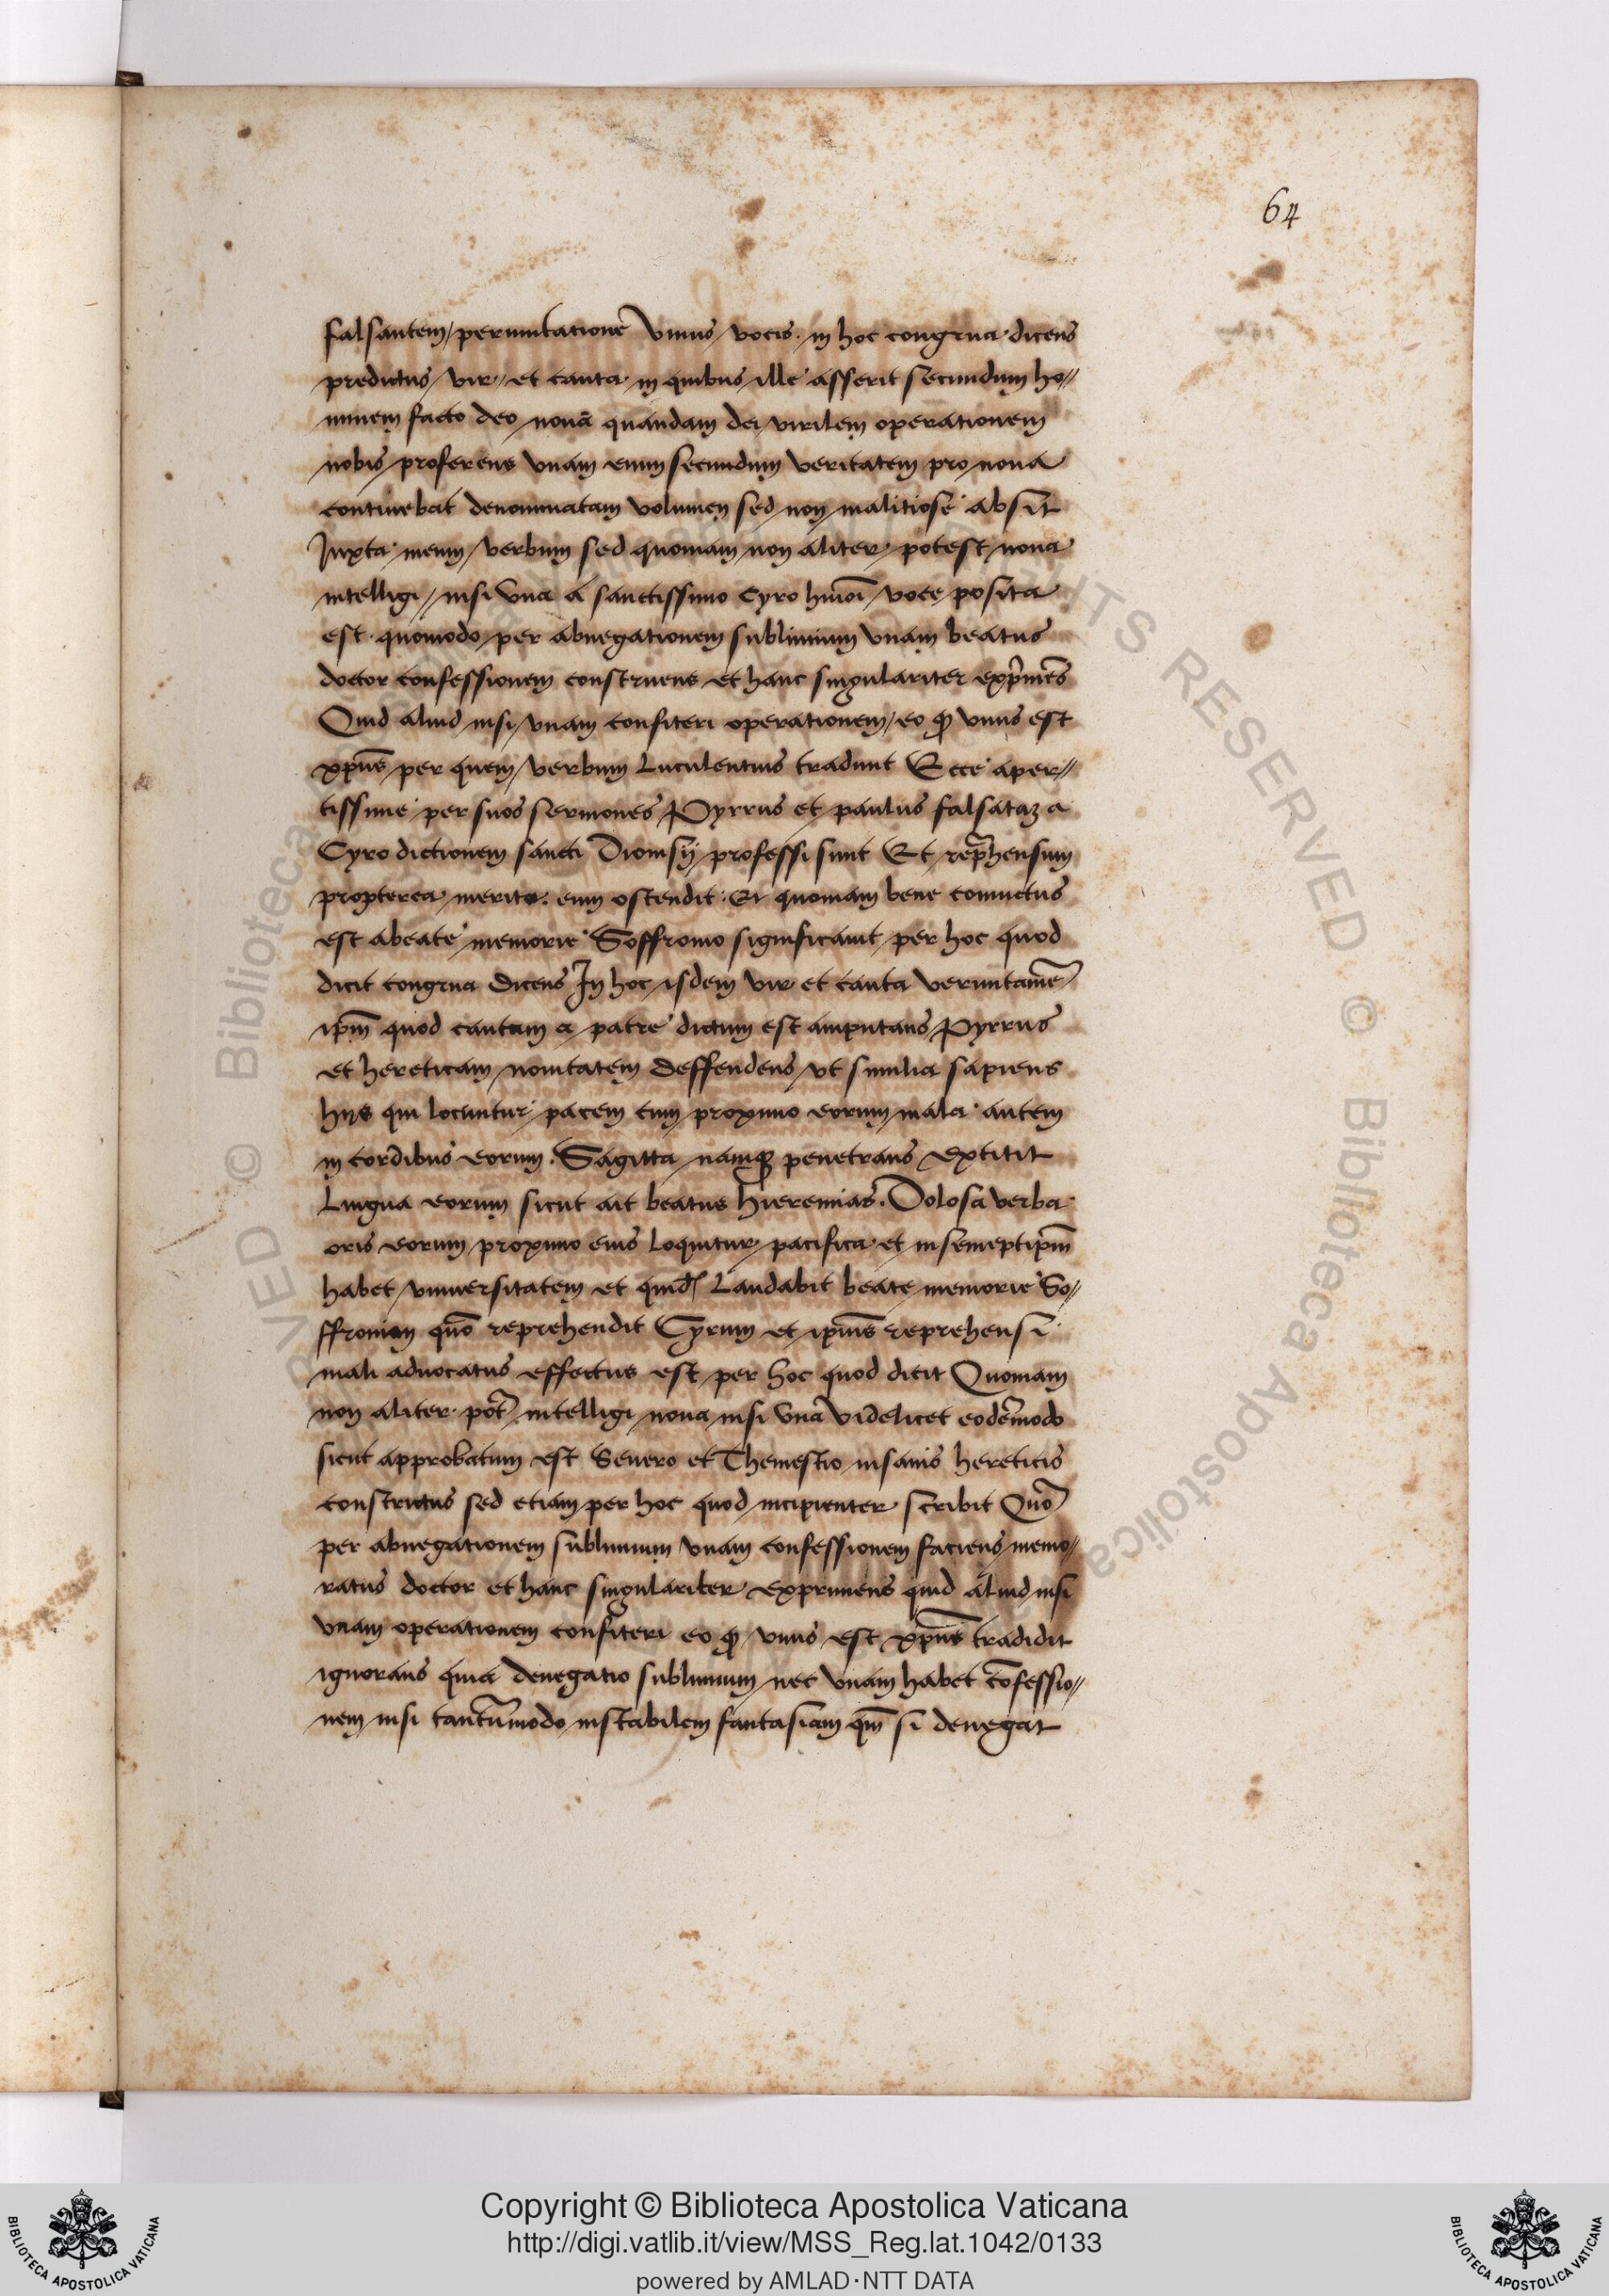 64
falsantem permutationē vnius vocis. in hoc congrua dicens
predictus vir et cauta in quibus ille asserit secundum ho//
minem facto deo nouā quandam dei virilem operationem
nobis proferens vnam enim secundum veritatem pro noua
continebat denominatam volumen sed non malitiose absit
Juxta meum verbum sed quoniam non aliter potest noua
intelligi nisi vna a sanctissimo cyro hmōi voce posita
est. quomodo per abnegationem sublimium vnam beatus
doctor confessionem construens et hanc singulariter
Quid aliud nisi vnam confiteri operationem eo ꝙ vnus est
xp̄us per quem verbum Luculentius tradunt Ecce aper//
tissime per suos sermones Pyrrus et paulus falsataꝫ a
Cyro dictionem sancti Dionisij professi sunt Et rep̄hensum
propterea merito eum ostendit. Et quoniam bene conuictus
est abeate memorie Soffronio significauit per hoc quod
dicit congrua dicens In hoc isdem vir et cauta veruntamē
ip̄m quod cautam a patre dictum est amputans Pyrrus
et hereticam nouitatem deffendens vt similia sapiens
hijs qui locuntur pacem cum proximo eorum mala autem
in cordibus eorum. Sagitta namqꝫ penetrans extitit
Lingua eorum sicut ait beatus hieremias. Dolosa verba
oris eorum proximo eius loquitur pacifica et in semeptip̄m
habet vniuersitatem et quidē Laudabit beate memorie So//
ffronium quō reprehendit Cyrum et ip̄ius reprehensi
mali aduocatus effectus est per hoc quod dicit Quoniam
non aliter pōt intelligi noua nisi vna videlicet eodēmodo
sicut approbatum est Seuero et Themestio insanis hereticis
constrictus sed etiam per hoc quod incipienter scribit Quō
per abnegationem sublimium vnam confessionem faciens memo//
ratus doctor et hanc singulariter exprimens quid aliud nisi
vnam operationem confiteri eo ꝙ vnus est xp̄us tradidit
ignorans quia denegatio sublimium nec vnam habet cōfessio//
nem nisi tantūmodo instabilem fantasiam qm̄ si denegat
Copyright © Biblioteca Apostolica Vaticana
http://digi.vatlib.it/view/MSS_Reg.lat.1042/0133
powered by AMLAD·NTT DATA
BIBLIOTECA APOSTOLICA VATICANA
BIBLIOTECA APOSTOLICA VATICANA